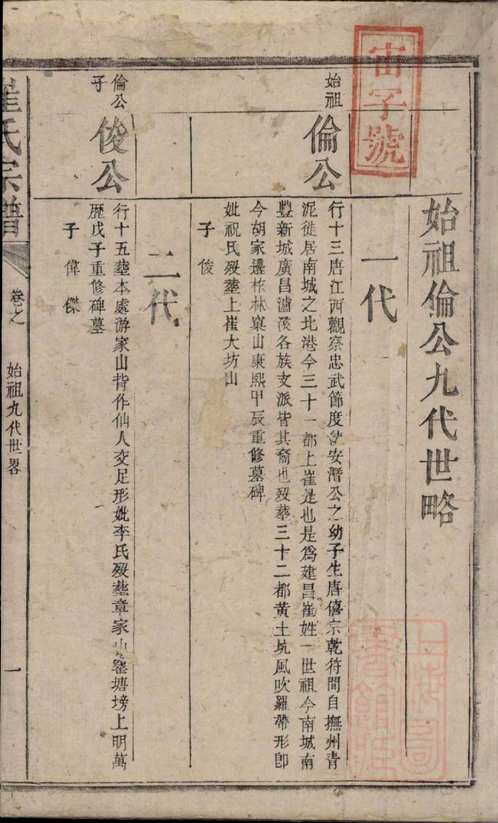 宙字號
始祖倫公九代世略
一代
始祖
倫公
行十三唐江西觀察忠武節度使安潛公之幼子生唐僖宗乾符間自撫州青
泥徙居南城之北港今三十一都上崔是也是為建昌崔姓一世祖今南城南
豐新城廣昌瀘溪各族支派皆其裔也歿葬三十二都黃土坑風吹羅帶形即
今胡家邊核林窠山康熙甲辰重修墓碑
妣祝氏歿葬上崔大坊山
子 俊
二代
倫公子
俊公
行十五葬本處游家山背作仙人交足形妣李氏歿葬章家山窑塘塝上明萬
歷戊子重修碑墓
子 偉 傑
崔氏宗譜
卷之
始祖九代世畧
一